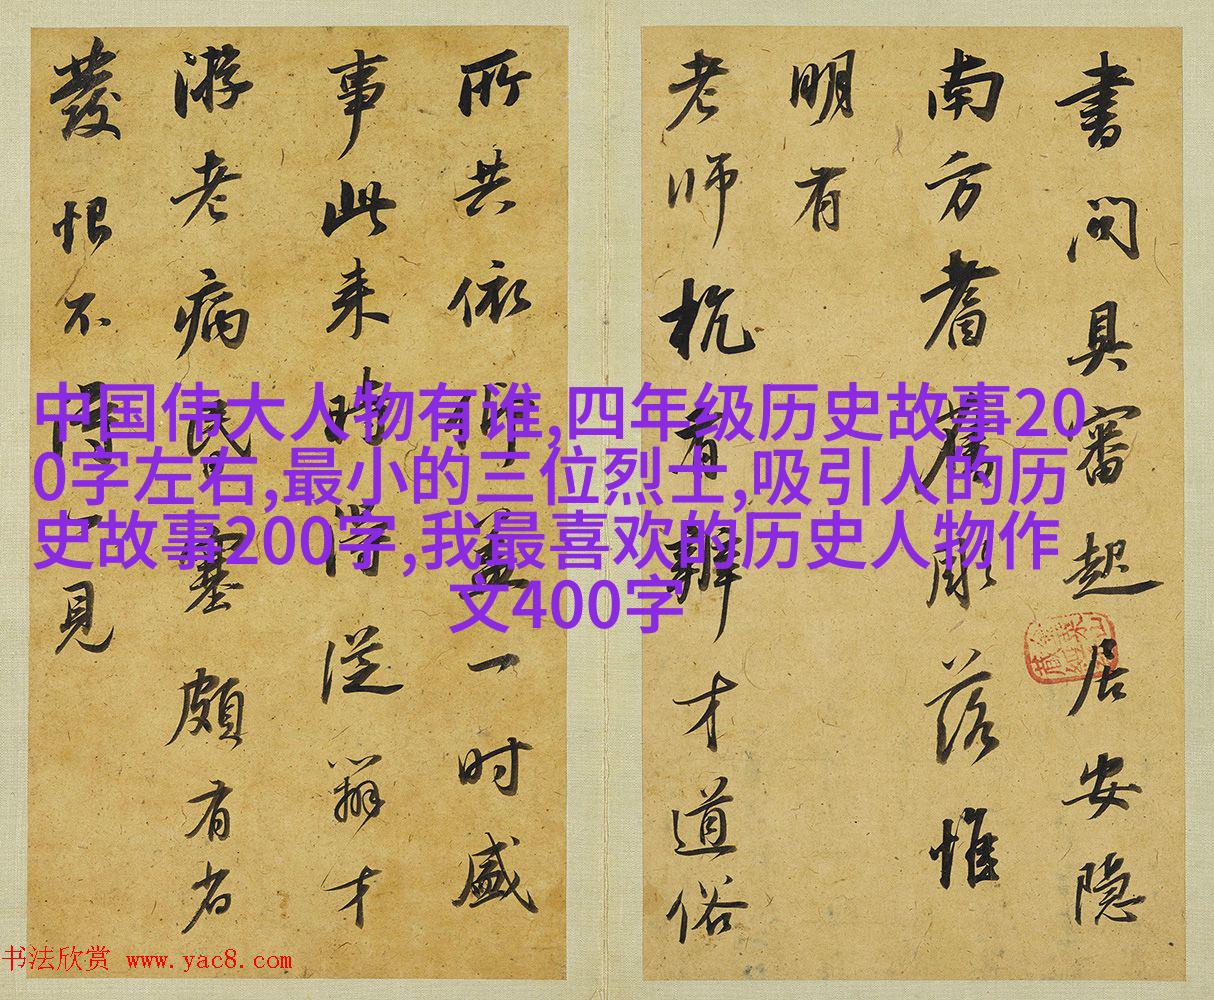 書問具審起居安隱
南方耆舊彫落惟
明有
老師杭有辯才道俗
所共依仰蓋一時盛
事此來時得從辯才
游老病昏塞頗有省
發恨不見
中国伟大人物有谁,四年级历史故事20
0字左右,最小的三位烈士,吸引人的历
史故事200字,我最喜欢的历史人物作
文400字
书法欣赏 www.yac8.com